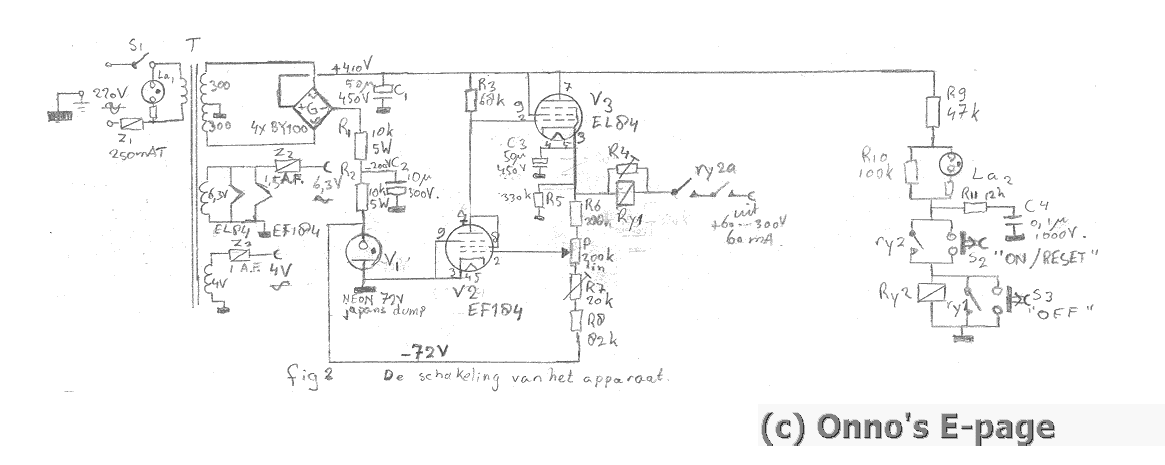 S1
T
La1
220V
Z1
250mAT
300
300
4x BY100
G
+410V
50µ
450V
C1
R1
10k
5W
-200V
C2
10µ
300V.
R2
10k
5W
Z2
1,5 A.F.
6,3V
6,3V
EL84
EF184
Z3
1 A.F.
4V
4V
V1
NEON 72V
japans dump
R3
68k
9
2
7
V3
EL84
3
4 5
C3
50µ
450V
330k
R5
R4
Ry1
ry2a
uit
+60-300V
60mA.
R6
200k
P
200k
lin
R7
20k
R8
82k
7
9
8
2
3
4 5
V2
EF184
-72V
R9
47k
R10
100k
La2
R11 12k
C4
0,1µ
1000V.
ry2
S2 "ON/RESET"
Ry2
ry1
S3
"OFF"
fig 2 De schakeling van het apparaat.
(c) Onno's E-page